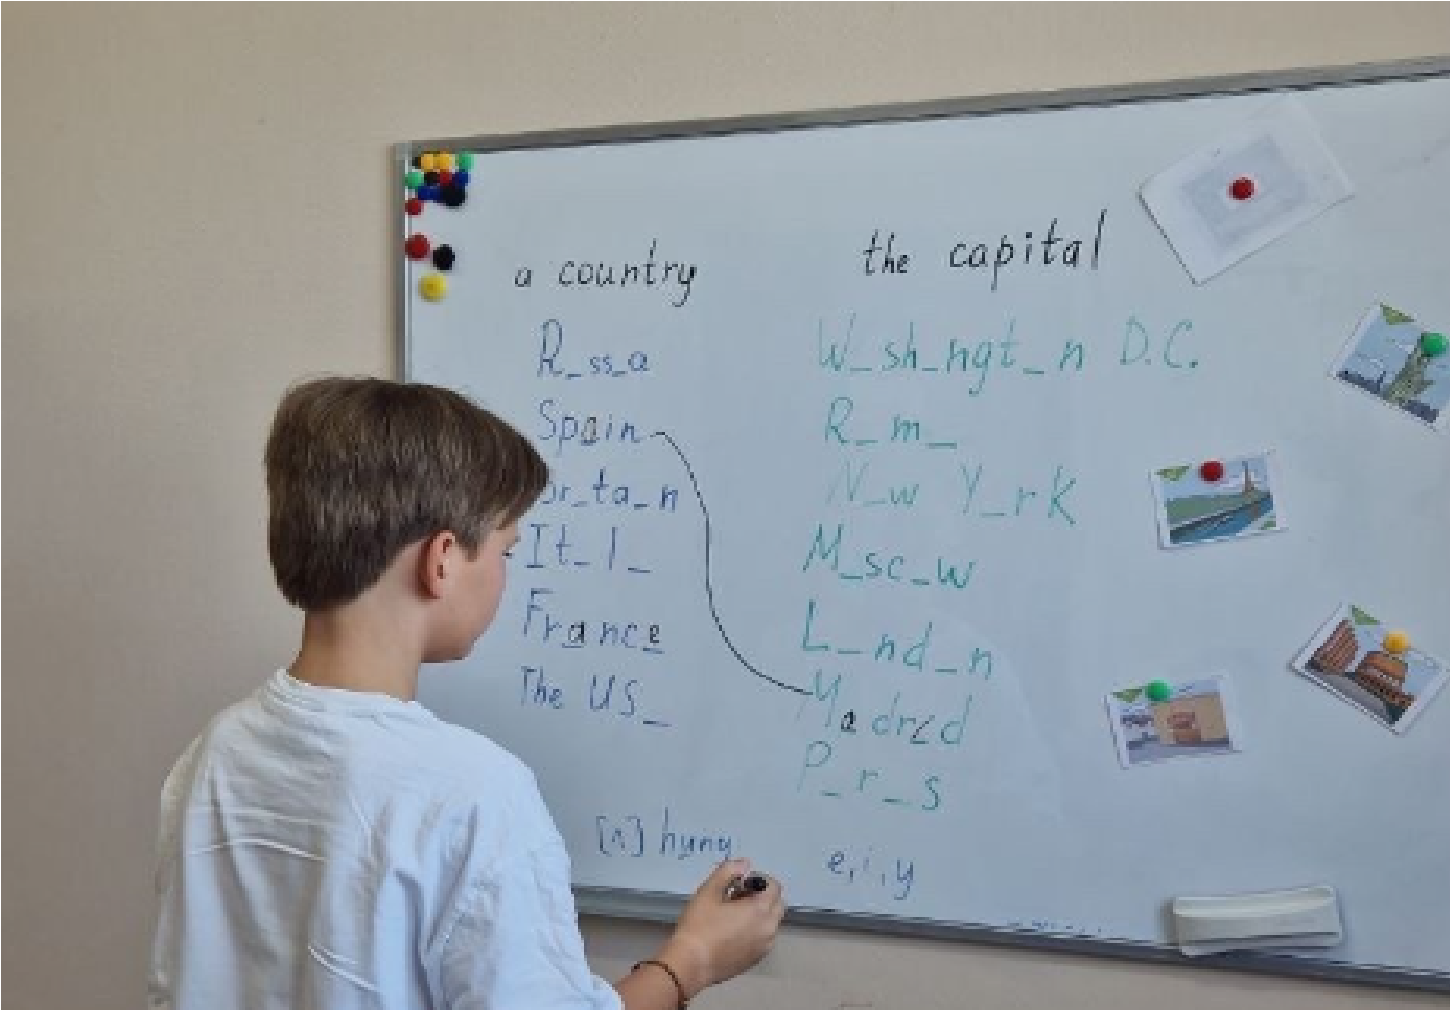 a country
R_ss_a
Spain
br_ta_n
It_l_
France
The US_
the capital
W_sh_ngt_n D.C.
R_m_
N_w Y_rK
M_sc_w
L_nd_n
Madrid
P_r_s
[ʌ] hung
e, i, y